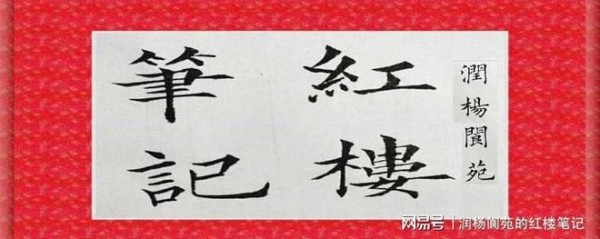 潤楊閬苑
紅樓
筆記
网易号 | 润杨阆苑的红楼笔记